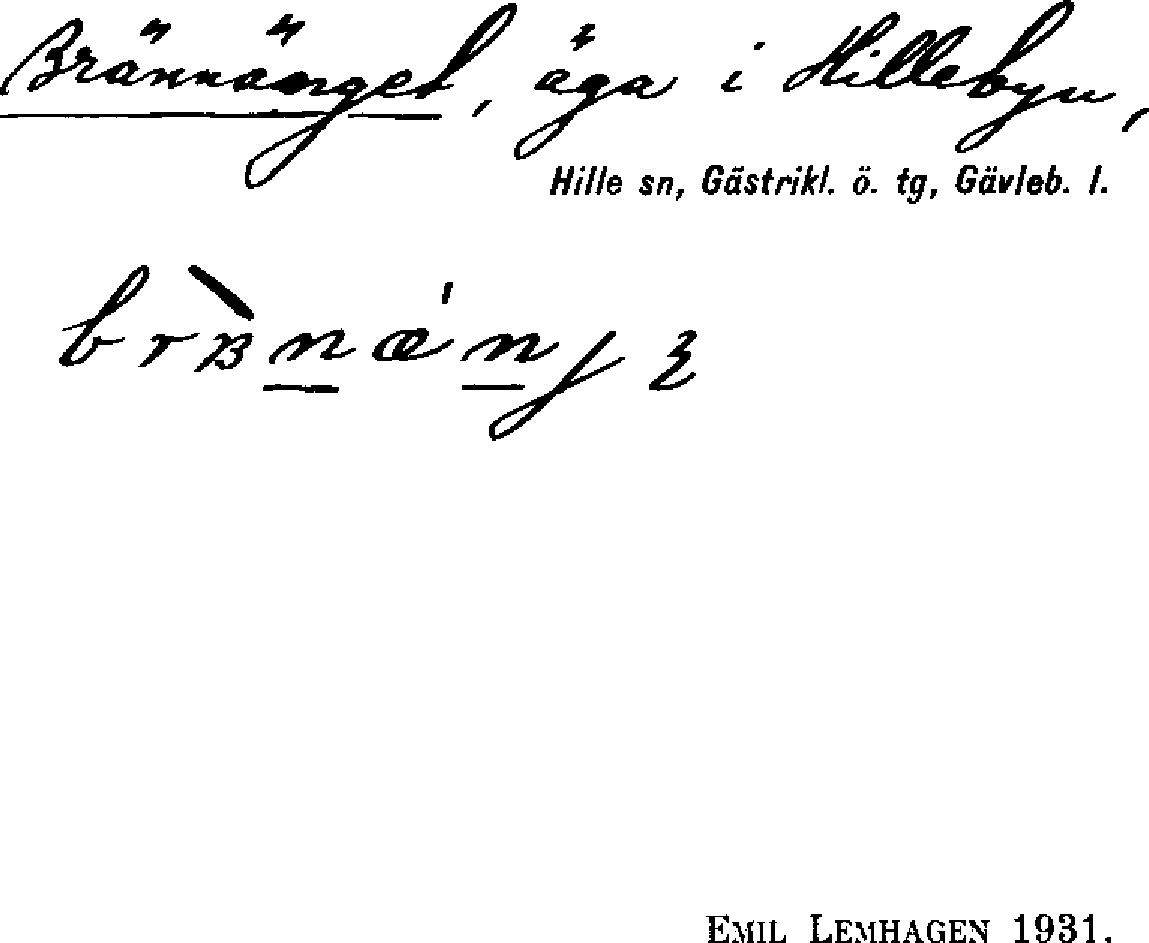 Brännänget, äga i Hillebyn,
Hille sn, Gästrikl. ö. tg, Gävleb. l.
EMIL LEMHAGEN 1931.